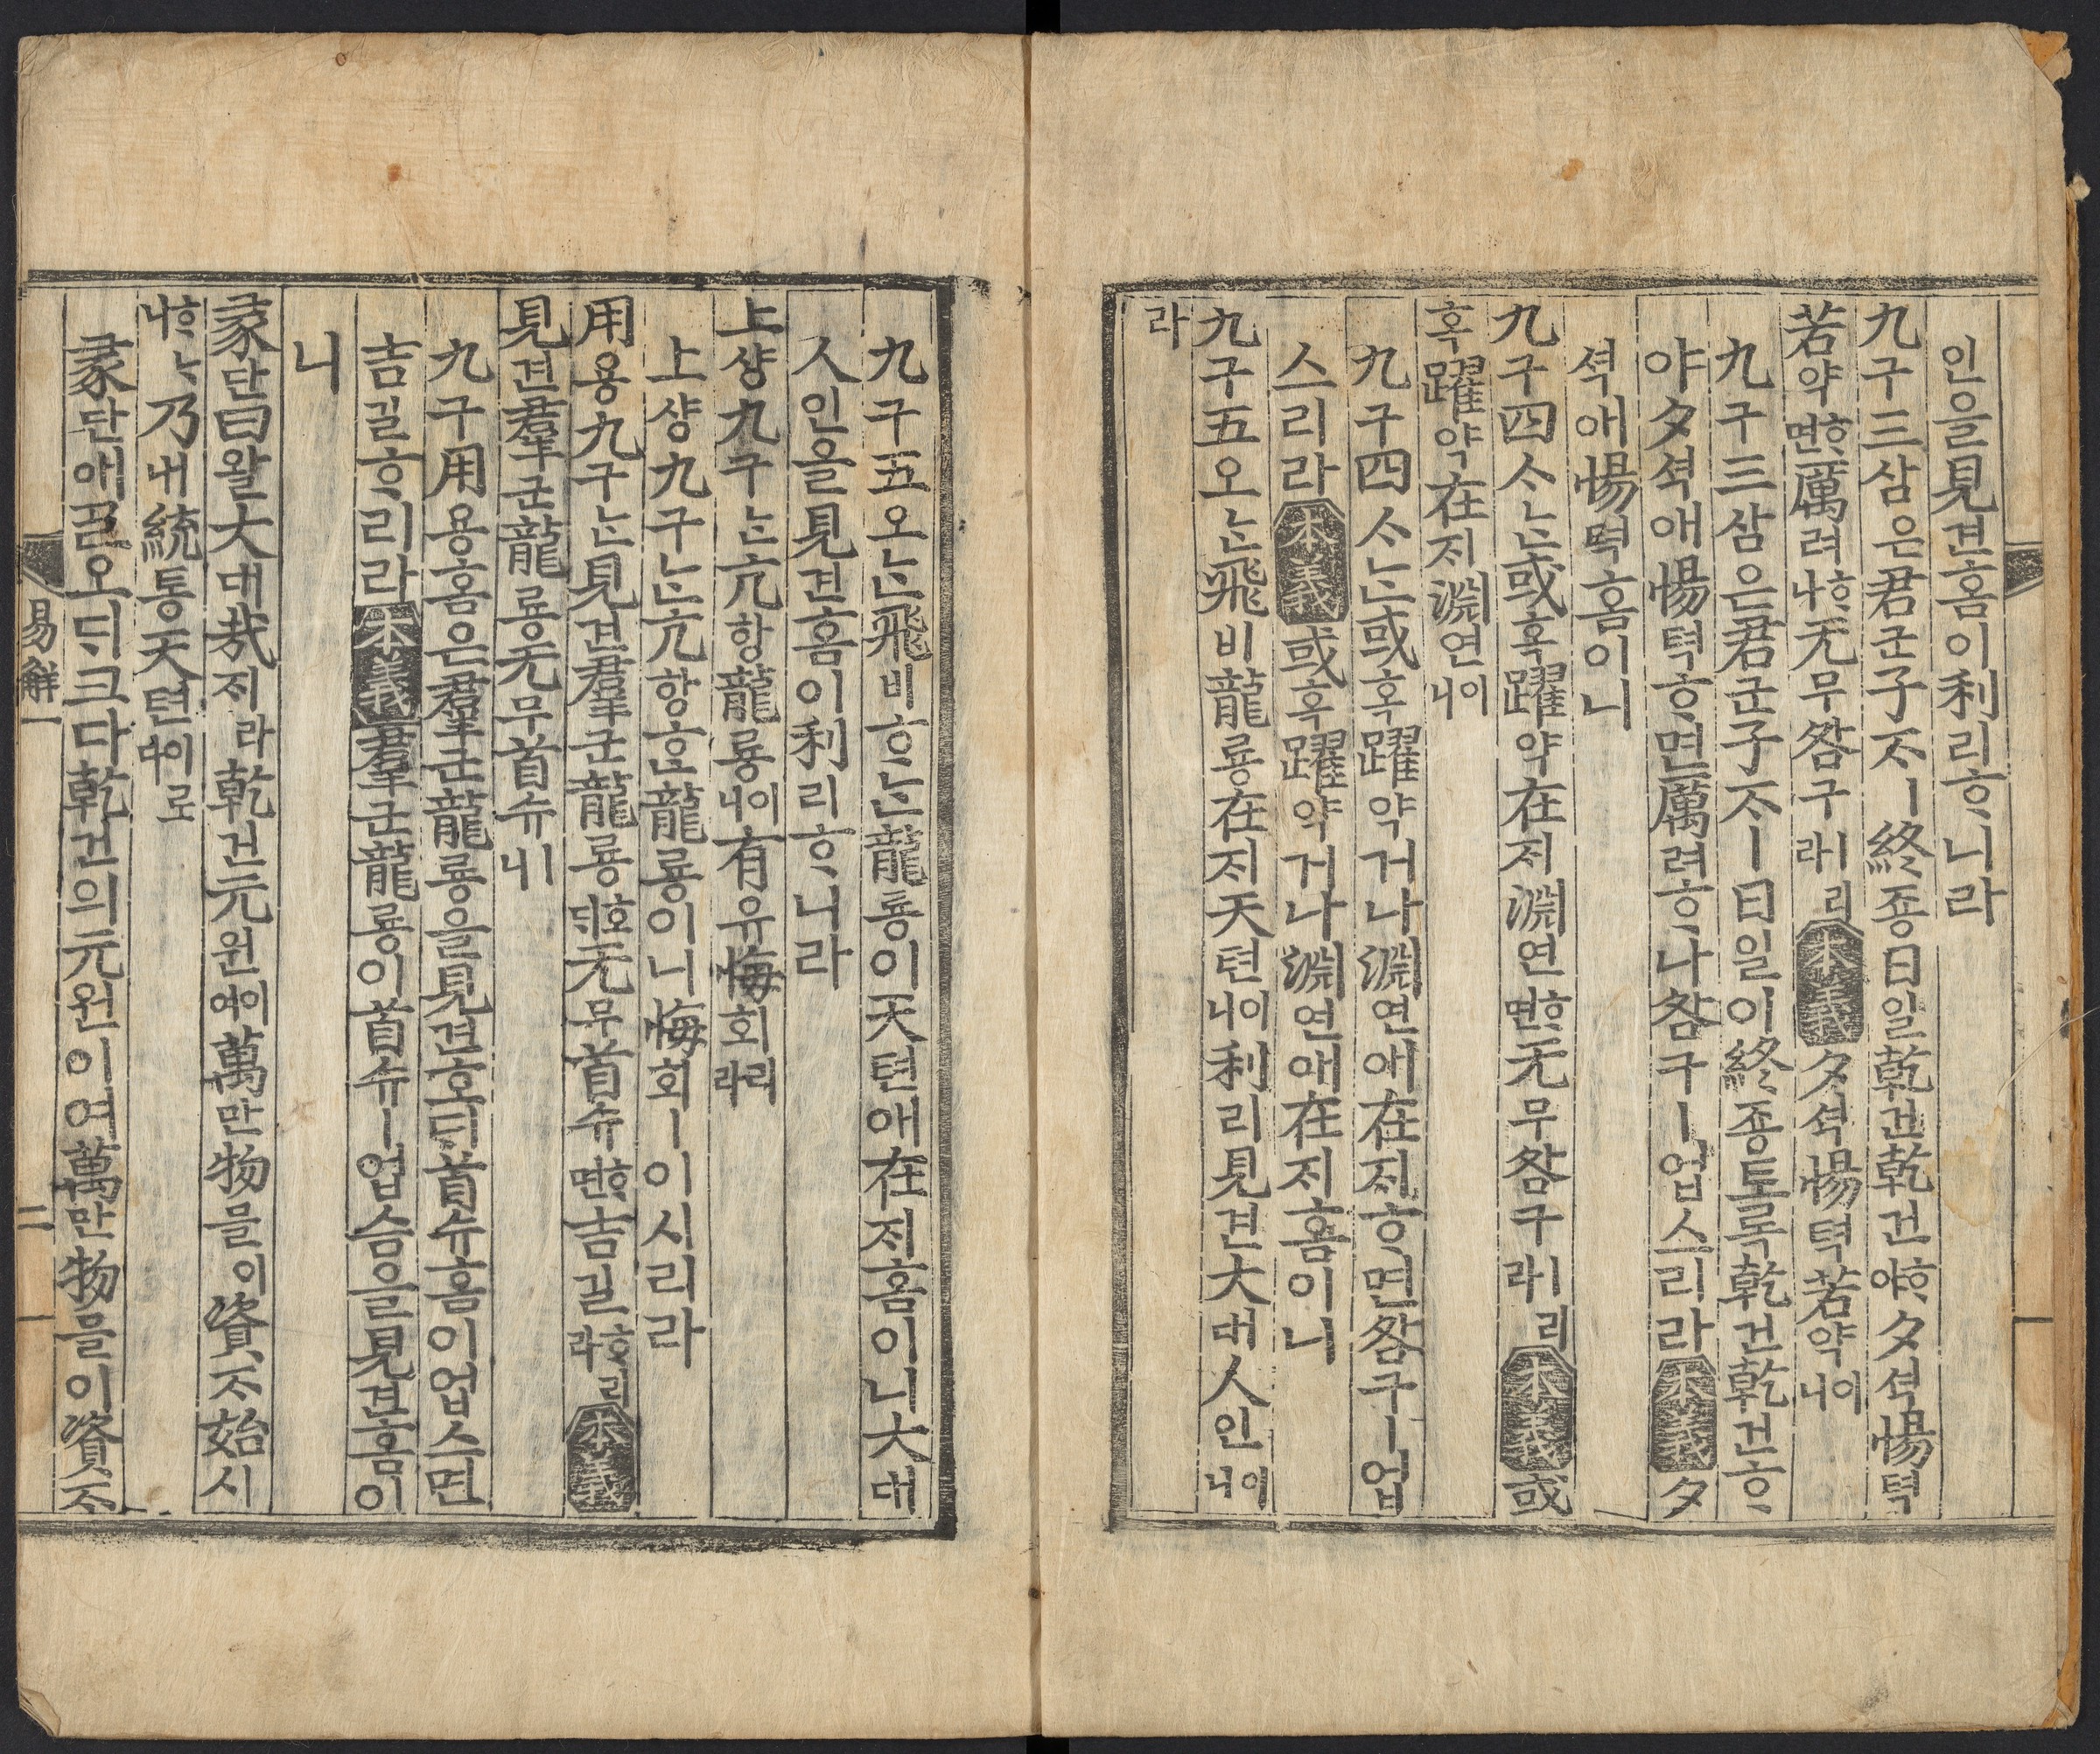 인을見견홈이利리ᄒᆞ니라
九구三삼은君군子ᄌᆞㅣ終죵日일乾건乾건ᄒᆞ야夕셕惕텩
若약ᄒᆞ면厲려ᄒᆞ나无무咎구ㅣ리라本義夕셕惕텩若약이니
九구三삼은君군子ᄌᆞㅣ日일이終죵토록乾건乾건ᄒᆞ
야夕셕애惕텩ᄒᆞ면厲려ᄒᆞ나咎구ㅣ업스리라本義夕
셕애惕텩홈이니
九구四ᄉᆞᄂᆞᆫ或혹躍약在ᄌᆡ淵연ᄒᆞ면无무咎구ㅣ리라本義或
혹躍약在ᄌᆡ淵연이니
九구四ᄉᆞᄂᆞᆫ或혹躍약거나淵연애在ᄌᆡᄒᆞ면咎구ㅣ업
스리라本義或혹躍약거나淵연애在ᄌᆡ홈이니
九구五오ᄂᆞᆫ飛비龍룡在ᄌᆡ天텬이니利리見견大대人인이니
라
九구五오ᄂᆞᆫ飛비ᄒᆞᄂᆞᆫ龍룡이天텬애在ᄌᆡ홈이니大대
人인을見견홈이利리ᄒᆞ니라
上샹九구ᄂᆞᆫ亢항龍룡이니有유悔회리라
上샹九구ᄂᆞᆫ亢항ᄒᆞᆫ龍룡이니悔회ㅣ이시리라
用용九구ᄂᆞᆫ見견羣군龍룡호ᄃᆡ无무首슈ᄒᆞ면吉길ᄒᆞ리라本義
見견羣군龍룡无무首슈ㅣ니
九구用용홈은羣군龍룡을見견호ᄃᆡ首슈홈이업스면
吉길ᄒᆞ리라本義羣군龍룡이首슈ㅣ업슴을見견홈이
니
彖단曰왈大대哉ᄌᆡ라乾건元원이여萬만物믈이資ᄌᆞ始시
ᄒᆞᄂᆞ니乃내統통天텬이로다
彖단애ᄀᆞᆯ오ᄃᆡ크다乾건의元원이여萬만物믈이資ᄌᆞ
易解一
二